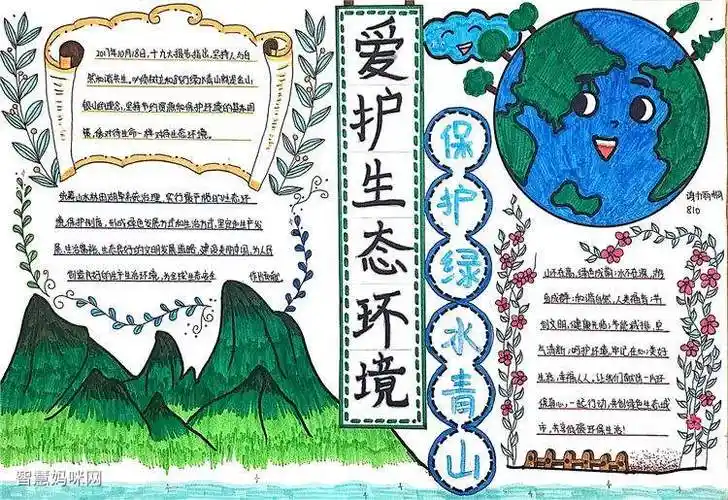 2017年10月18日,十九大报告指出,坚持人与自
然和谐共生。必须树立和践行绿水青山就是金山
银山的理念,坚持节约资源和保护环境的基本国
策,像对待生命一样对待生态环境。
统筹山水林田湖草系统治理,实行最严格的生态环
境保护制度,形成绿色发展方式和生活方式,坚定走生产发
展、生活富裕、生态良好的文明发展道路,建设美丽中国,为人民
创造良好的生产生活环境,为全球生态安全
作出贡献
爱护生态环境
保护绿水青山
810
山不在高,绿色成荫;水不在深,
成群;和谐自然,人类福音;节
创文明,健康先临;节能减排,
气清新;呵护环境,牢记在心;美好
生活,幸福人人。让我们献出一片环
保真心,一起行动,共创绿色生态城
市,共享低碳环保生活!
智慧妈咪网